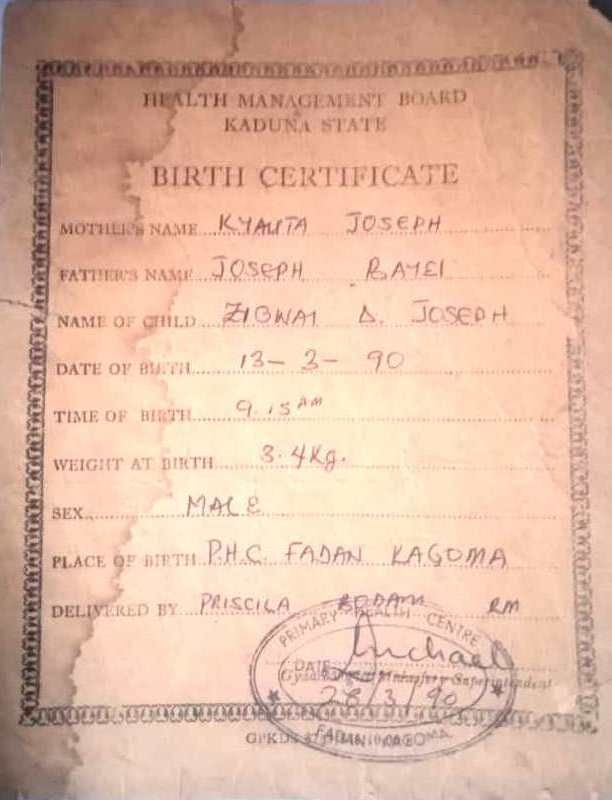 HEALTH MANAGEMENT BOARD
KADUNA STATE
BIRTH CERTIFICATE
MOTHER'S NAME KYAUTA JOSEPH
FATHER'S NAME JOSEPH BAYEI
NAME OF CHILD ZIGWAI D. JOSEPH
DATE OF BIRTH 13-3-90
TIME OF BIRTH 9.15 AM
WEIGHT AT BIRTH 3.4Kg.
SEX MALE
PLACE OF BIRTH P.H.C. FADAN KAGOMA
DELIVERED BY PRISCILA BODAM RM
PRIMARY HEALTH CENTRE
Michael
DATE
Superintendent
28/3/90
FADAN KAGOMA